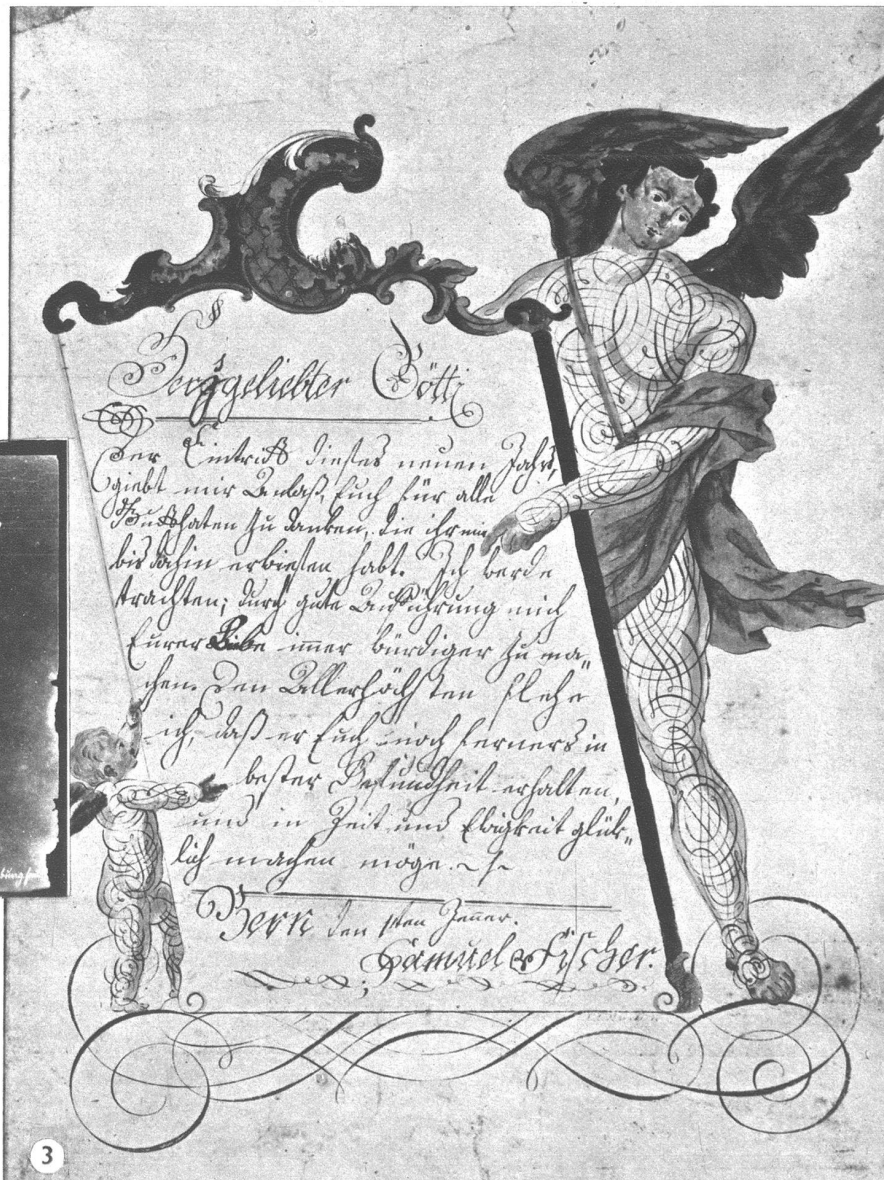 Herzgeliebter Götti
Der Eintritt dieses neuen Jahrs,
giebt mir Anlaß, Euch für alle
Gutthaten zu danken, die ihr mir
bis dahin erwiesen habt. Ich werde
trachten; durch gute Aufführung mich
Eurer Liebe immer würdiger zu ma„
chen. Den Allerhöchsten flehe
ich, daß er Euch noch ferners in
bester Gesundheit erhalten,
und in Zeit und Ewigkeit glük„
lich machen möge.
Bern den 1sten Jenner.
Samuel Fischer.
3